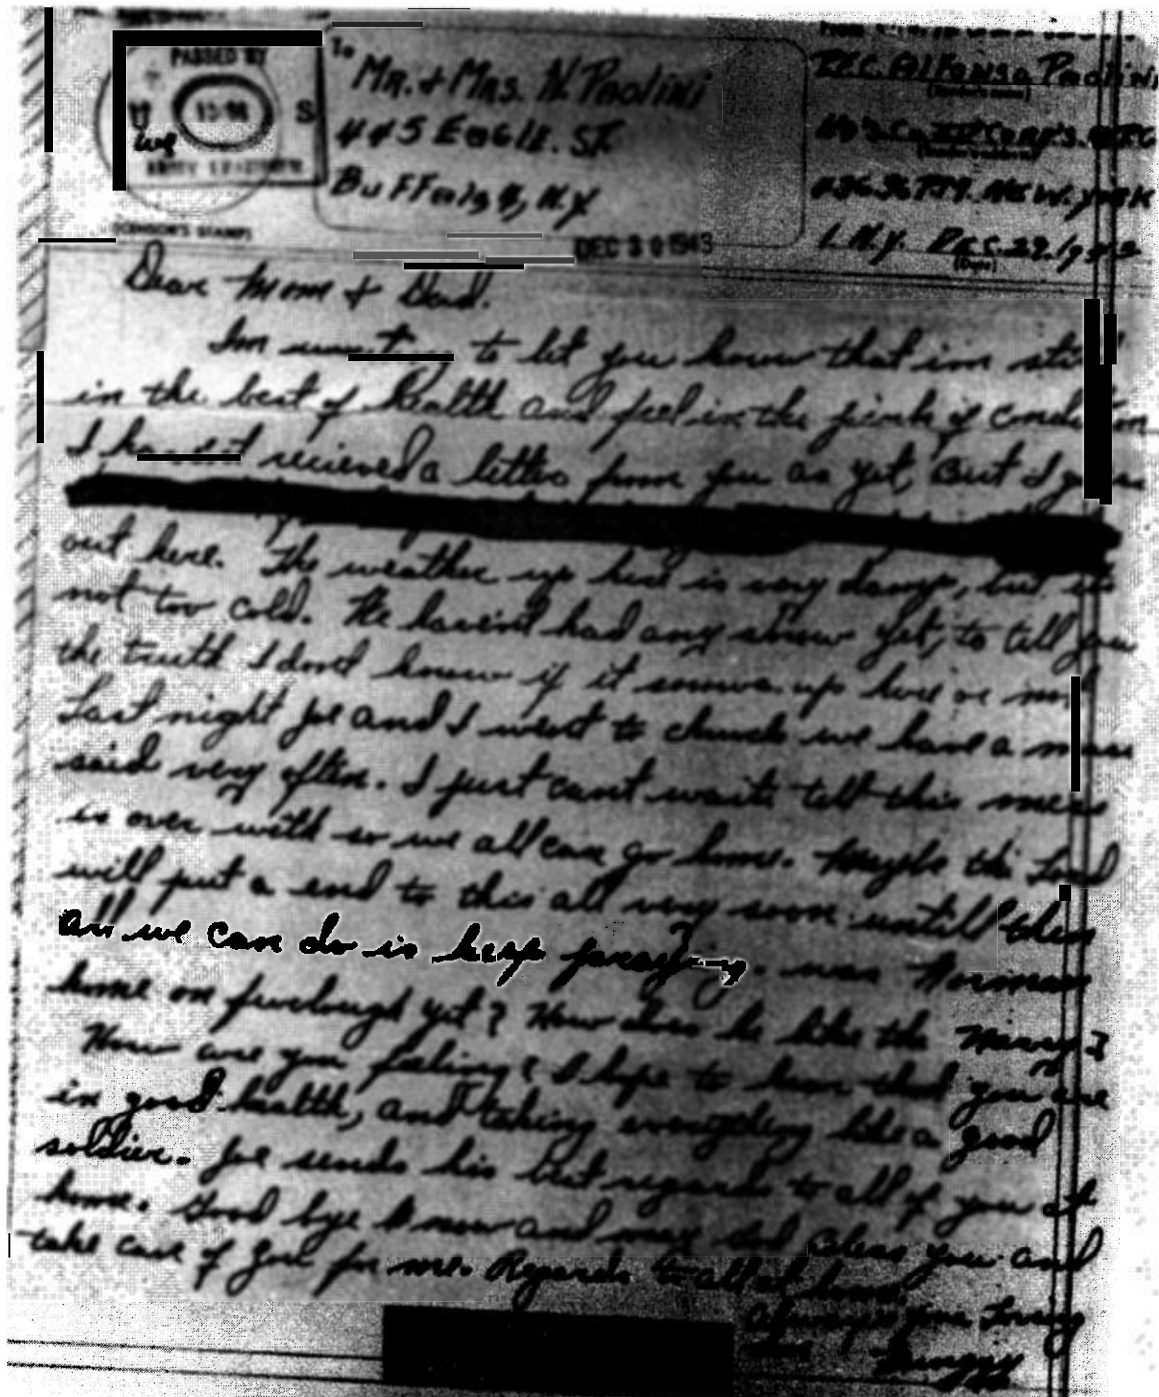 PASSED BY
U S
ARMY EXAMINER
To
Mr. + Mrs. N. Paolini
445 Eagle. St.
Buffalo, N.Y
DEC 30 1943
From
Pfc. Alfonso Paolini
New. York
1 N.Y. Dec. 27. 1943
(Date)
Dear Mom + Dad.
Im writing to let you know that im still
in the best of health and feel in the pink of condition
I havent recieved a letter from you as yet, But I guess
out here. The weather up here is very damp, but its
not too cold. We havent had any snow yet, to tell you
the truth I dont know if it snows up here or not
Last night Joe and I went to church we have a mass
said very often. I just cant wait till this mess
is over with so we all can go home. Maybe the Lord
will put a end to this all very soon untill then
all we can do is keep praying. was Norman
home on furlough yet? How does he like the Navy?
How are you feeling? I hope to hear that you are
in good health, and taking everything like a good
soldier. Joe sends his best regards to all of you at
home. Good bye know and may God bless you and
take care of you for me. Regards to all at home
Always your Loving
Son